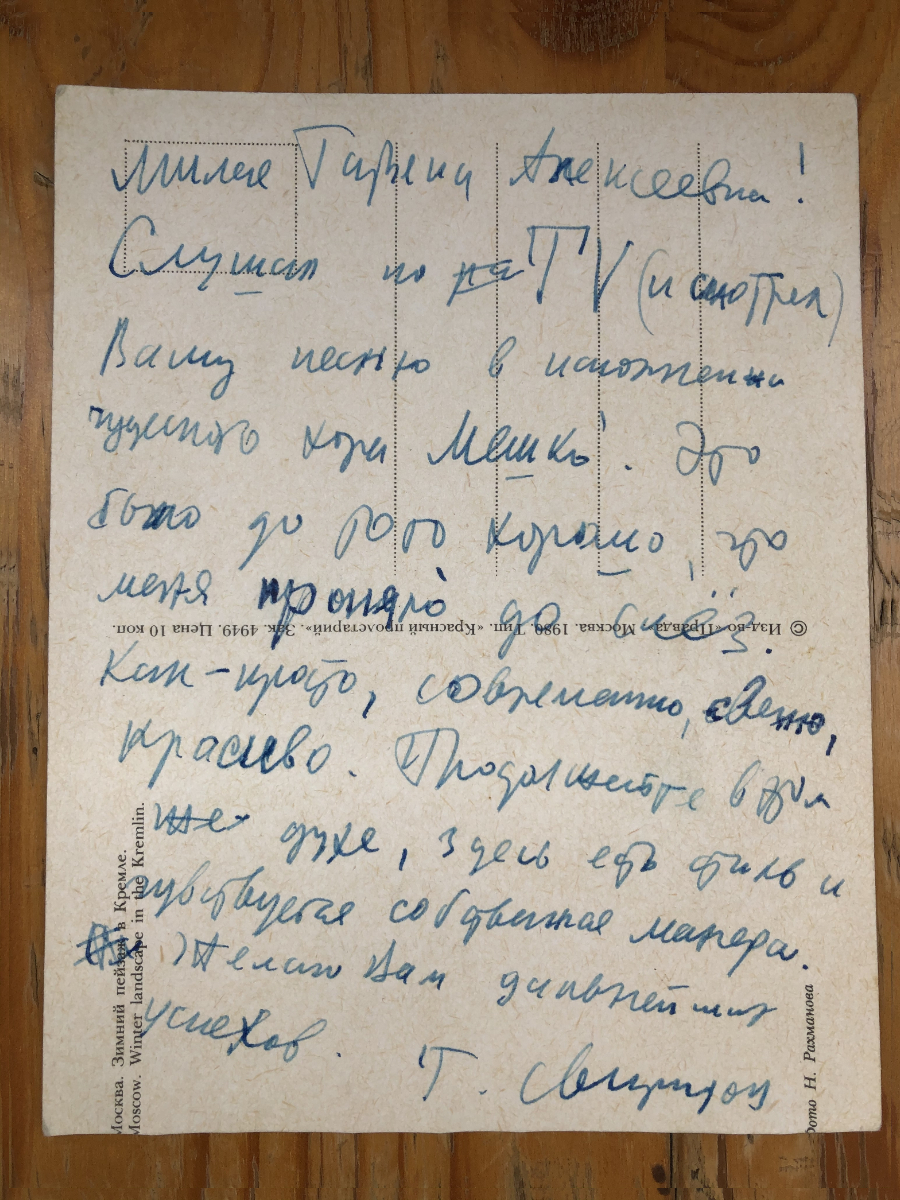 Милая Татьяна Алексеевна!
Слушал по на TV (и смотрел)
Вашу песню в исполнении
чудесного хора
было до того хорошо, что
меня проняло до слёз.
© Изд-во «Правда». Москва. 1980. Тип. «Красный пролетарий». Зак. 4949. Цена 10 коп.
Как-то просто, современно, свежо,
красиво. Продолжайте в этом
же духе, здесь есть стиль и
чувствуется собственная манера.
Желаю Вам дальнейших
успехов.
Г. Свиридов
Москва. Зимний пейзаж в Кремле.
Moscow. Winter landscape in the Kremlin.
Фото Н. Рахманова